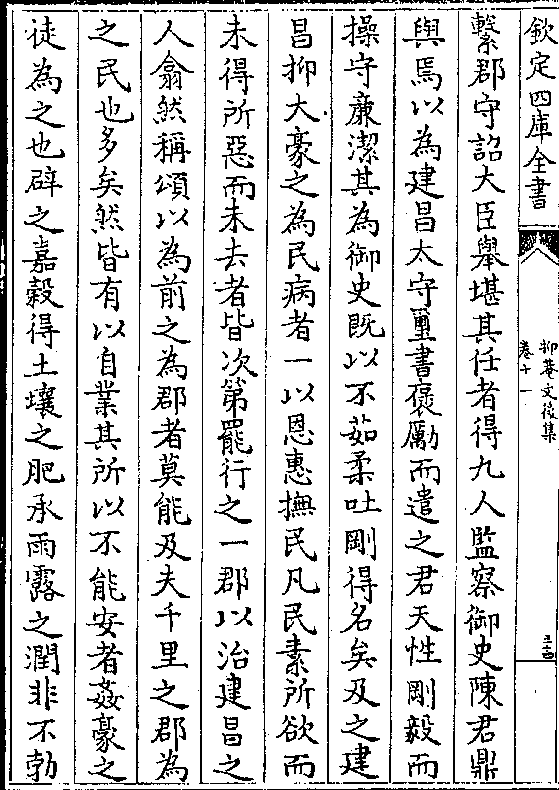 欽定四庫全書
抑菴文後集
卷十一
三十四
繫郡守詔大臣舉堪其任者得九人監察御史陳君鼎
與焉以為建昌太守璽書褒勵而遣之君天性剛毅而
操守廉潔其為御史既以不茹柔吐剛得名矣及之建
昌抑大豪之為民病者一以恩惠撫民凡民素所欲而
未得所惡而未去者皆次第罷行之一郡以治建昌之
人翕然稱頌以為前之為郡者莫能及夫千里之郡為
之民也多矣然皆有以自業其所以不能安者姦豪之
徒為之也辟之嘉穀得土壤之肥承雨露之潤非不勃